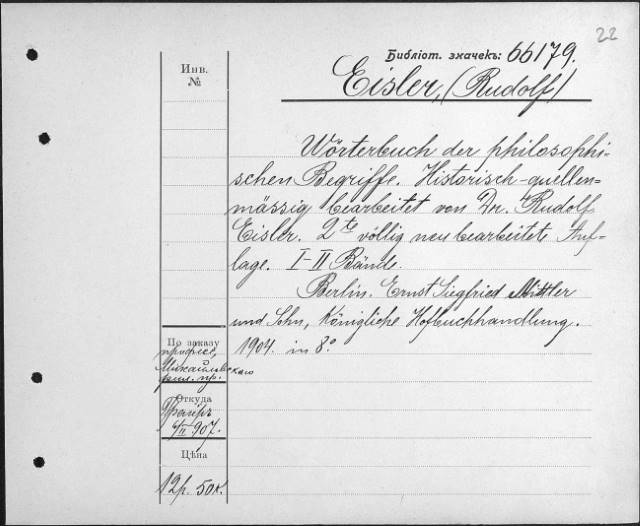 22
Библіот. значекъ: 66179.
Eisler, (Rudolf)
Инв.
№
Wörterbuch der philosophi-
schen Begriffe. Historisch-quellen=
mässig bearbeitet von Dr. Rudolf
Eisler. 2te völlig neu bearbeitete Auf-
lage. I-II Bände.
Berlin. Ernst Siegfried Mittler
und Sohn, Königliche Hofbuchhandlung.
1904. in 8°.
По заказу
профес.
Михайловскаго
Откуда
6/II 907.
Цѣна
12р. 50к.